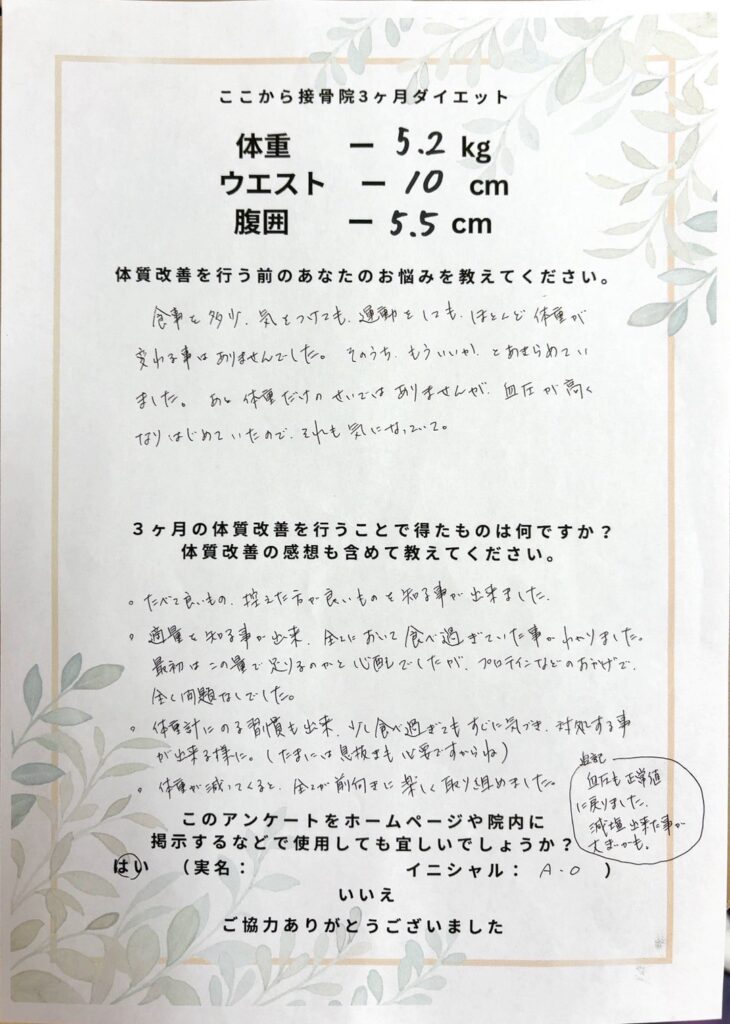 ここから接骨院3ヶ月ダイエット
体重 ー 5.2 kg
ウエスト ー 10 cm
腹囲 ー 5.5 cm
体質改善を行う前のあなたのお悩みを教えてください。
食事を多少、気をつけても、運動をしても、ほとんど体重が
変わる事はありませんでした。そのうち、もういいか、とあきらめてい
ました。あと体重だけのせいではありませんが、血圧が高く
なりはじめていたので、それも気になっていて。
3ヶ月の体質改善を行うことで得たものは何ですか?
体質改善の感想も含めて教えてください。
。たべて良いもの、控えた方が良いものを知る事が出来ました。
。適量を知る事が出来、全てにおいて食べ過ぎていた事がわかりました。
最初はこの量で足りるのかと心配でしたが、プロテインなどのおかげで、
全く問題なしでした。
。体重計にのる習慣も出来、少し食べ過ぎてもすぐに気づき、対処する事
が出来る様に。(たまには息抜きも必要ですからね)
。体重が減ってくると、全てが前向きに楽しく取り組めました。
追記
血圧も正常値
に戻りました。
減塩出来た事が
大きいかも。
このアンケートをホームページや院内に
掲示するなどで使用しても宜しいでしょうか?
はい (実名: イニシャル: A・O )
いいえ
ご協力ありがとうございました